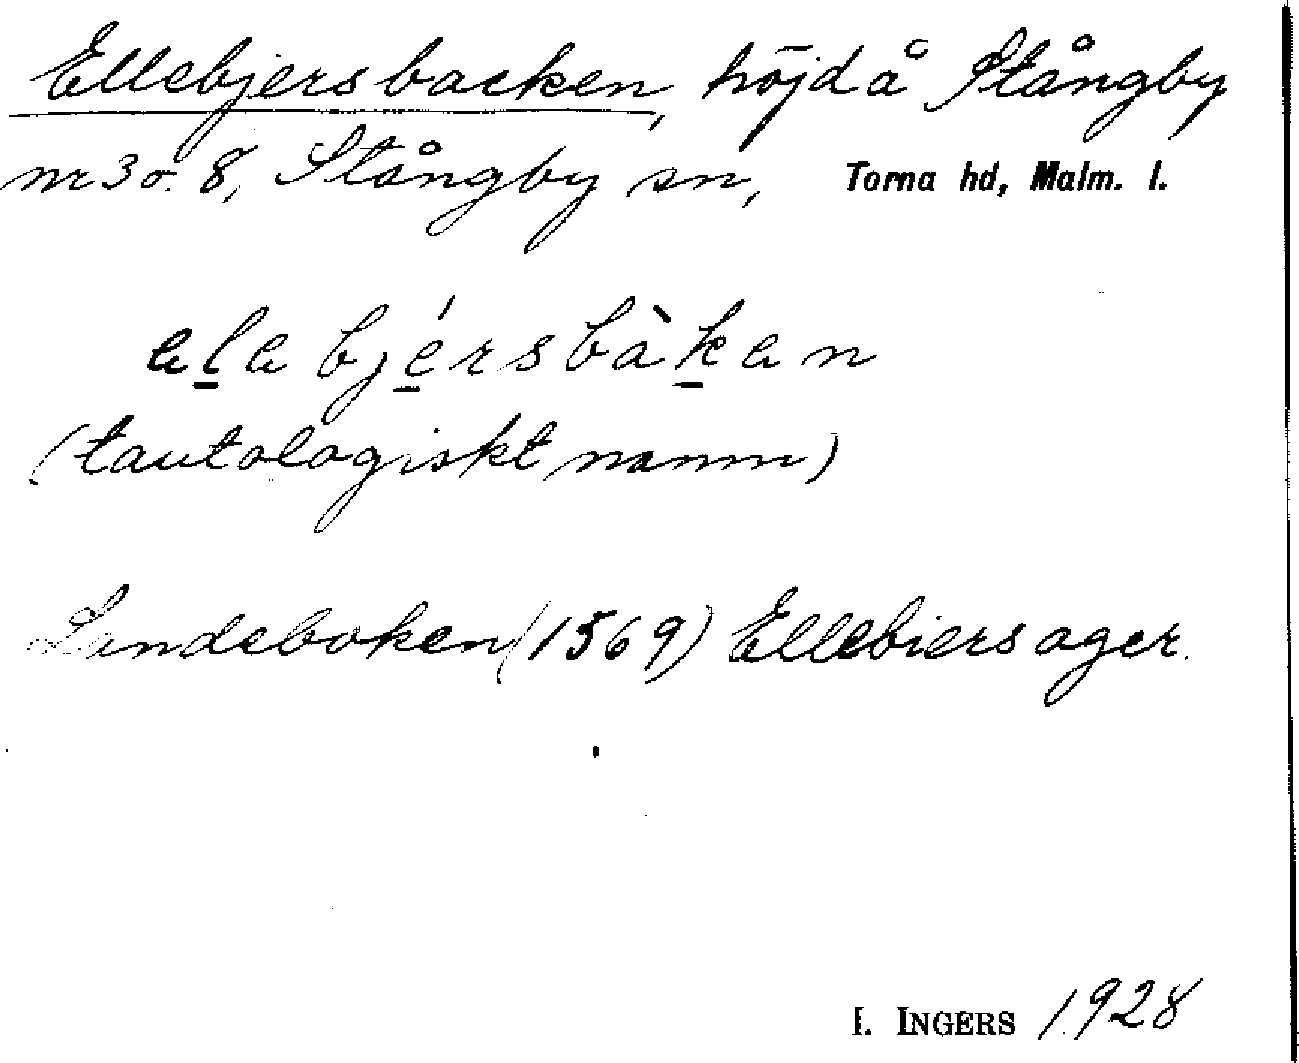 Ellebjersbacken, höjd å Stångby
nr 3 o. 8, Stångby sn, Torna hd, Malm. l.
elebjérsbàken
(tautologiskt namn)
Landeboken (1569) Ellebiersager.
I. INGERS 1928